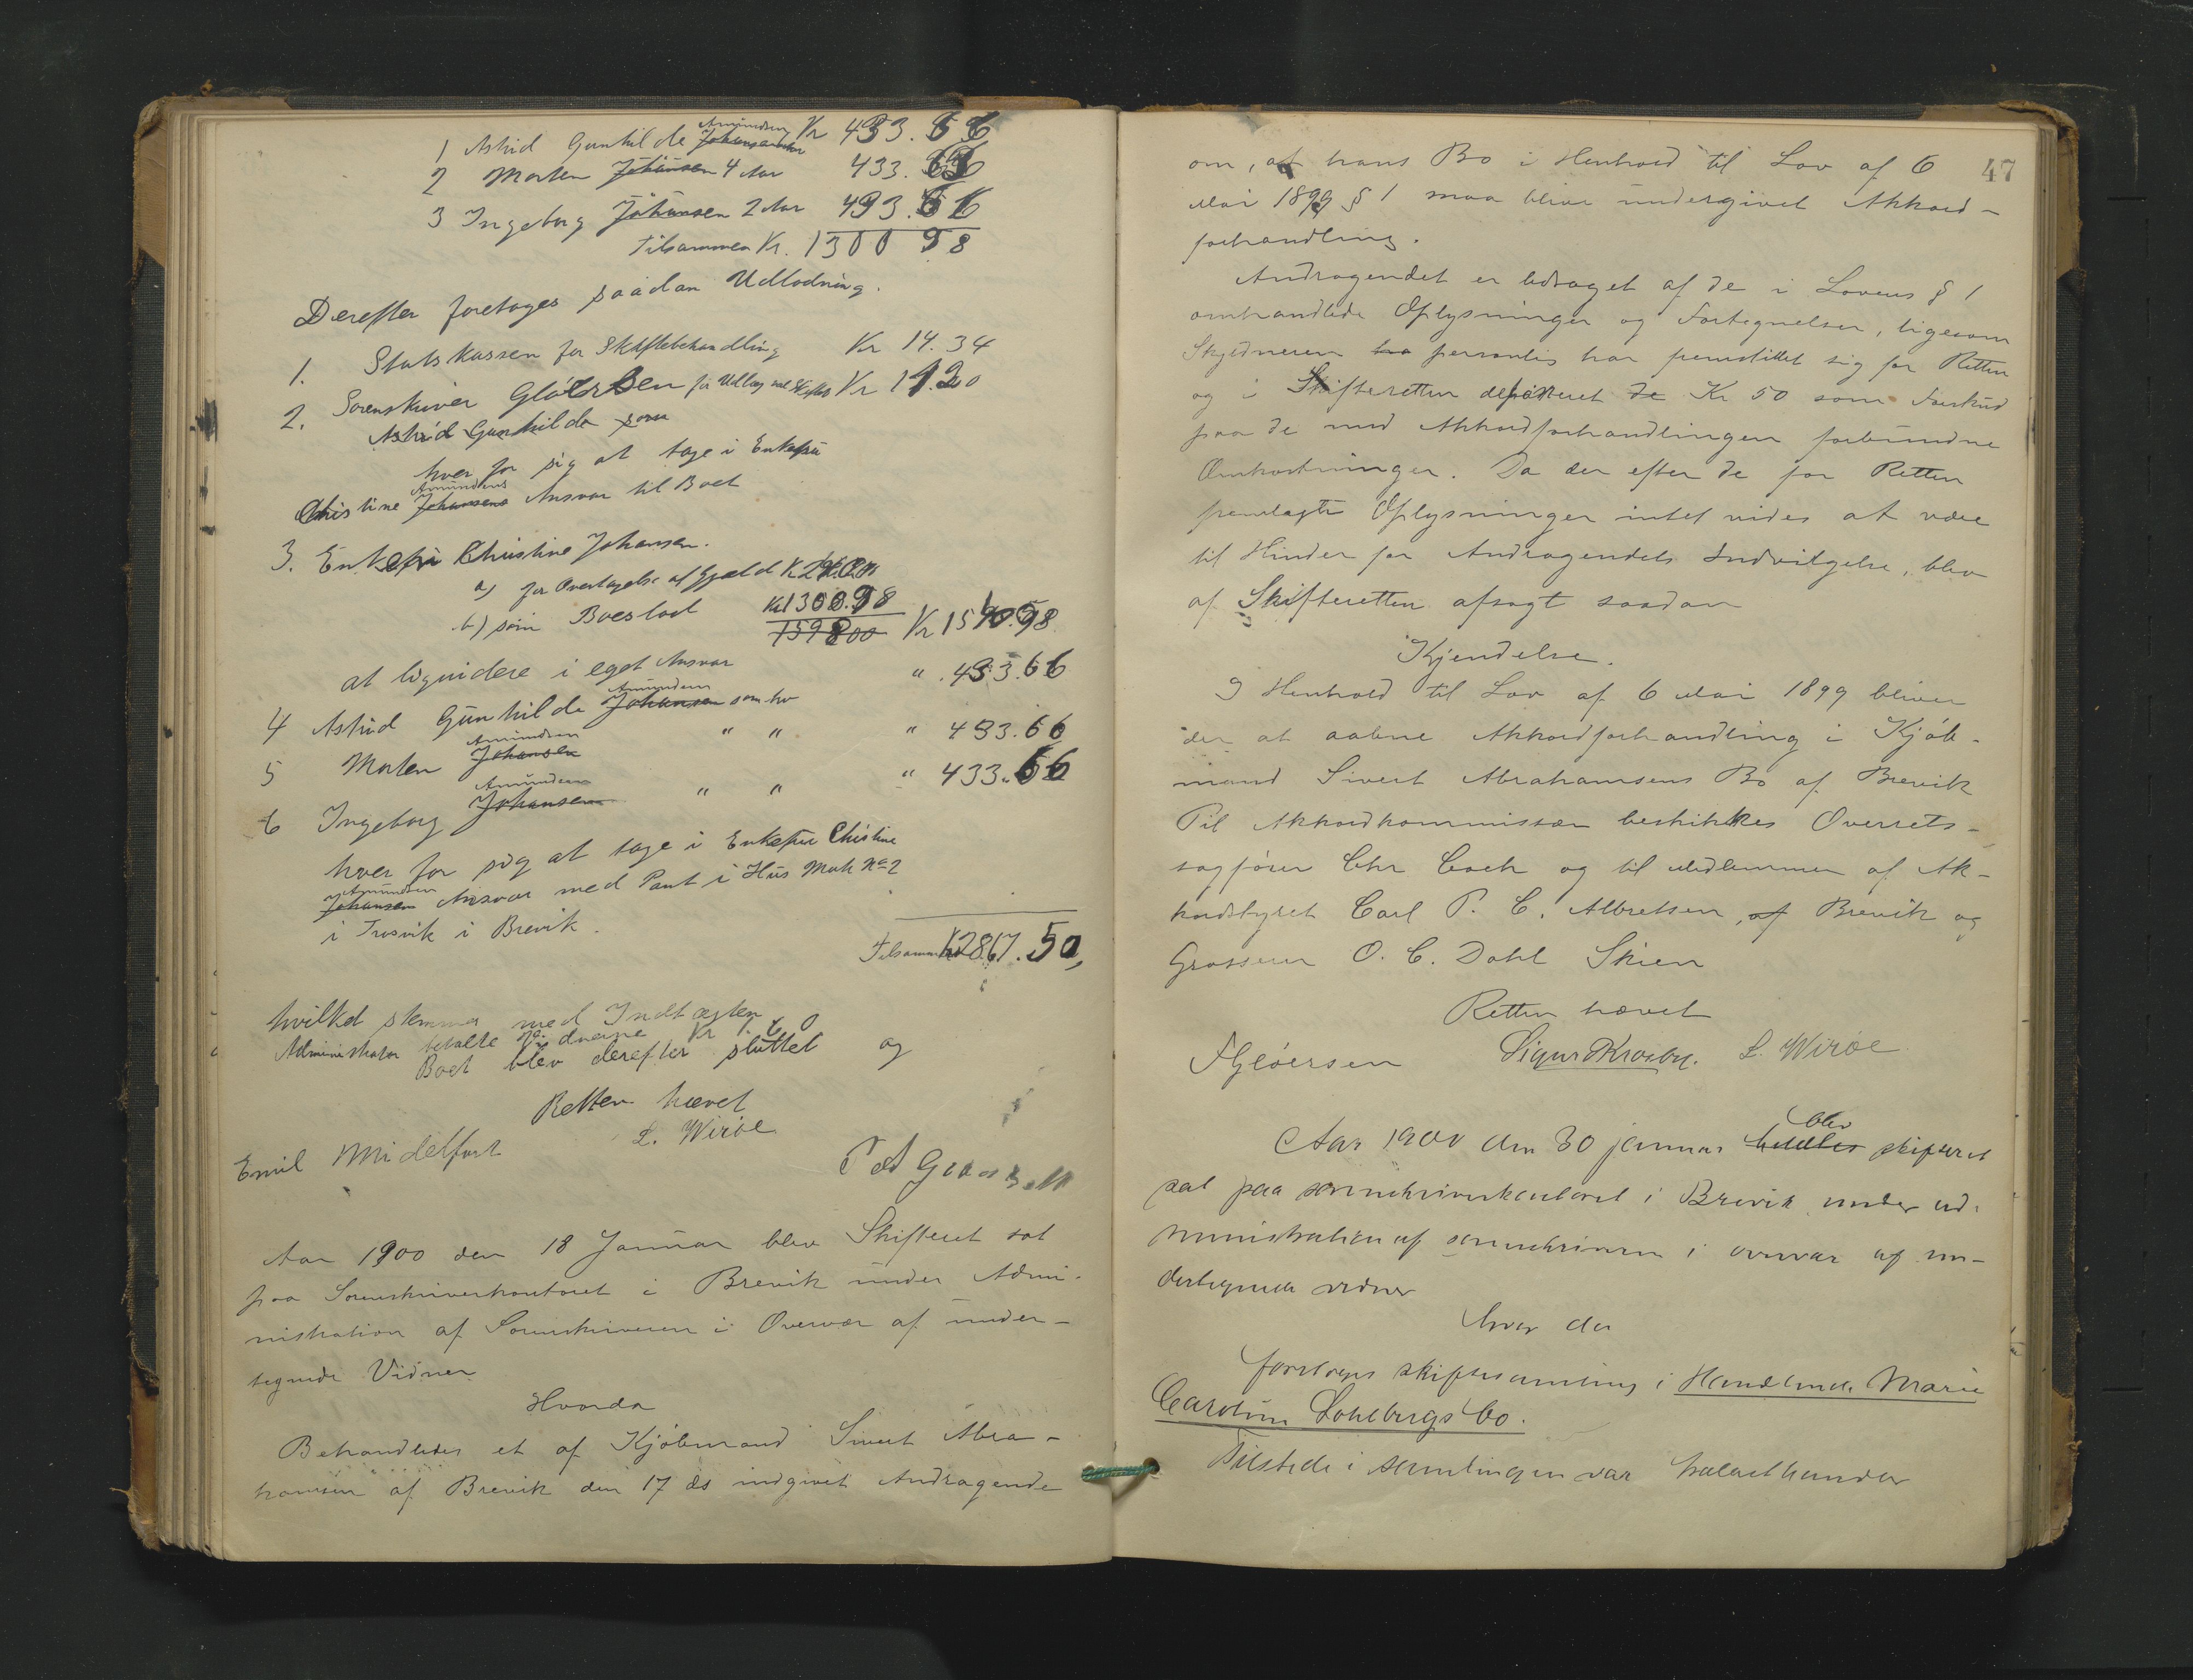 Amundsen
1 Astrid Gunhilde Johansen Kr 433.66
2 Morten Johansen 4 Aar 433.66
3 Ingeborg Johansen 2 Aar 433.66
Tilsammen Kr. 1300 98
Derefter foretoges saadan Udlodning.
1. Statskassen for Skiftebehandling Kr 14.34
2. Sorenskriver Gløersen for Udlæg ved Skiftet Kr 11.20
Astrid Gunhilde som
hver for sig at tage i Enkefru
Amundsens
Christine Johansens Ansvar til Boet
3. Enkefru Christine Johansen.
a) for Overtagelse af Gjæld Kr
b) som Boeslod Kr 1300.98
1598 00 Kr 1540.98
at liquidere i eget Ansvar
Amundsen
4 Astrid Gunhilde Johansen som hv " 433.66
Amundsen
5 Morten Johansen " " " 433.66
Amundsen
6 Ingeborg Johansen " " " 433.66
hver for sig at tage i Enkefru Christine
Amundsen
Johansen Ansvar med Pant i Hus Matr No 2
i Trosvik i Brevik.
Tilsammen Kr 2867.50,
hvilket stemmer med Indtægten
Administrator betalte Vidnerne Kr 1.60
Boet blev derefter sluttet og
Retten hævet
Emil Midelfart L. Wirøe
Aar 1900 den 18 Januar blev Skifteret sat
paa Sorenskriverkontoret i Brevik under Admi-
nistration af Sorenskriveren i Overvær af under-
tegnede Vidner
Hvorda
Behandledes et af Kjøbmand Sivert Abra-
hamsen af Brevik den 17 ds indgivet Andragende
47
om, at hans Bo i Henhold til Lov af 6
Mai 1899 § 1 maa blive undergivet Akkord-
forhandling.
Andragendet er ledsaget af de i Lovens § 1
omhandlede Oplysninger og Fortegnelser, ligesom
Skyldneren har personlig har fremstillet sig for Retten
og i Skifteretten deponeret de Kr 50 som Forskud
paa de med Akkordforhandlingen forbundne
Omkostninger. Da der efter de for Retten
fremlagte Oplysninger intet vides at være
til Hinder for Andragendets Indvilgelse, blev
af Skifteretten afsagt saadan
Kjendelse.
I Henhold til Lov af 6 Mai 1899 bliver
der at aabne Akkordforhandling i Kjøb-
mand Sivert Abrahamsens Bo af Brevik
Til Akkordkommissær beskikkes Overrets-
sagfører Chr Coch og til Medlemmer af Ak-
kordstyret Carl P. C. Albretsen, af Brevik og
Grosserer O. C. Dahl Skien
Retten hævet
FGløersen Sigurd Krosby. L. Wirøe
blev
Aar 1900 den 30 januar holdtes skifteret
sat paa sorenskriverkontoret i Brevik under ad-
ministration af sorenskriveren i overvær af un-
dertegnede vidner
hvor da
foretoges skiftesamling i Handlende Marie
Caroline Dahlbergs bo.
Tilstede i samlingen var